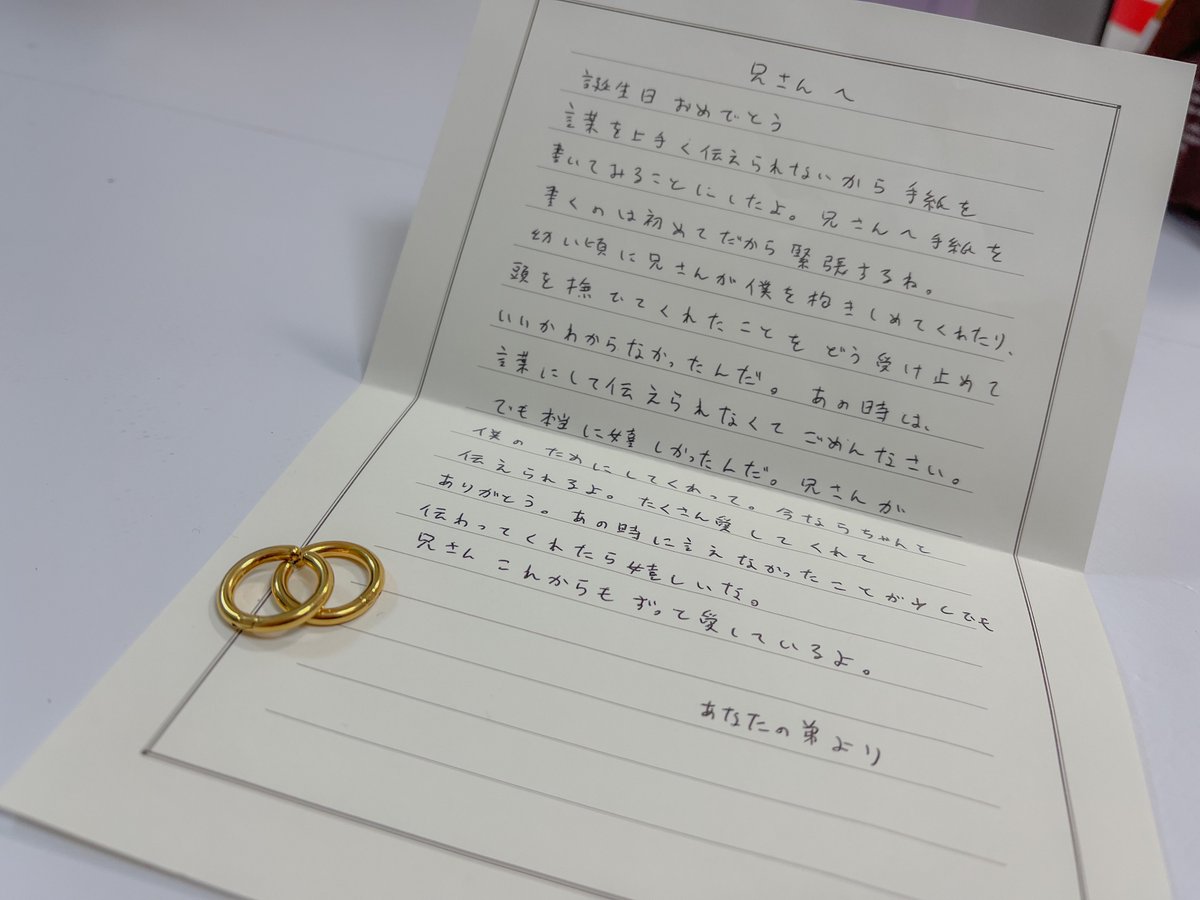 兄さんへ
誕生日 おめでとう
言葉を上手く伝えられないから 手紙を
書いてみることにしたよ。兄さんへ手紙を
書くのは初めてだから緊張するね。
幼い頃に兄さんが僕を抱きしめてくれたり、
頭を撫でてくれたことを どう受け止めて
いいかわからなかったんだ。 あの時は、
言葉にして伝えられなくて ごめんなさい。
でも本当に嬉しかったんだ。兄さんが
僕のためにしてくれって。今ならちゃんと
伝えられるよ。たくさん愛してくれて
ありがとう。あの時に言えなかったことが少しでも
伝わってくれたら嬉しいな。
兄さん これからも ずって愛しているよ。
あなたの弟より